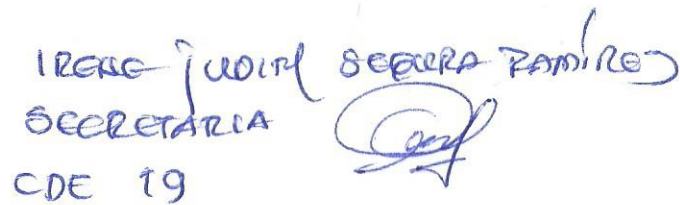 IRENE JUDITH SEGURA RAMÍREZ
SECRETARIA
CDE 19